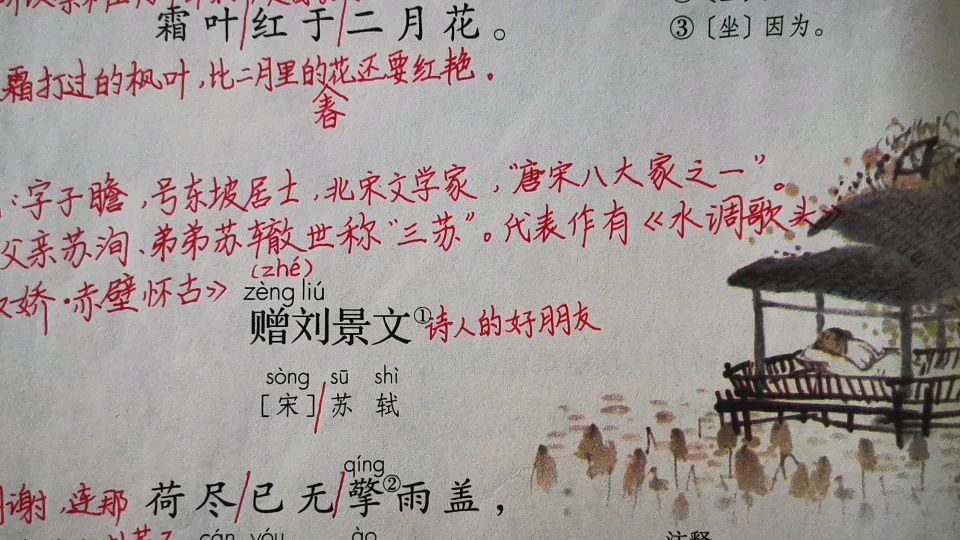 霜叶/红于/二月花。
③〔坐〕因为。
霜打过的枫叶,比二月里的花还要红艳。
春
:字子瞻,号东坡居士,北宋文学家,“唐宋八大家之一”。
父亲苏洵、弟弟苏辙世称“三苏”。代表作有《水调歌头》
(zhé)
娇·赤壁怀古》
zèng liú
赠刘景文①诗人的好朋友
sòng sū shì
[宋]/苏轼
qíng
谢,连那 荷尽/已无/擎②雨盖,
cán yóu ào
注释